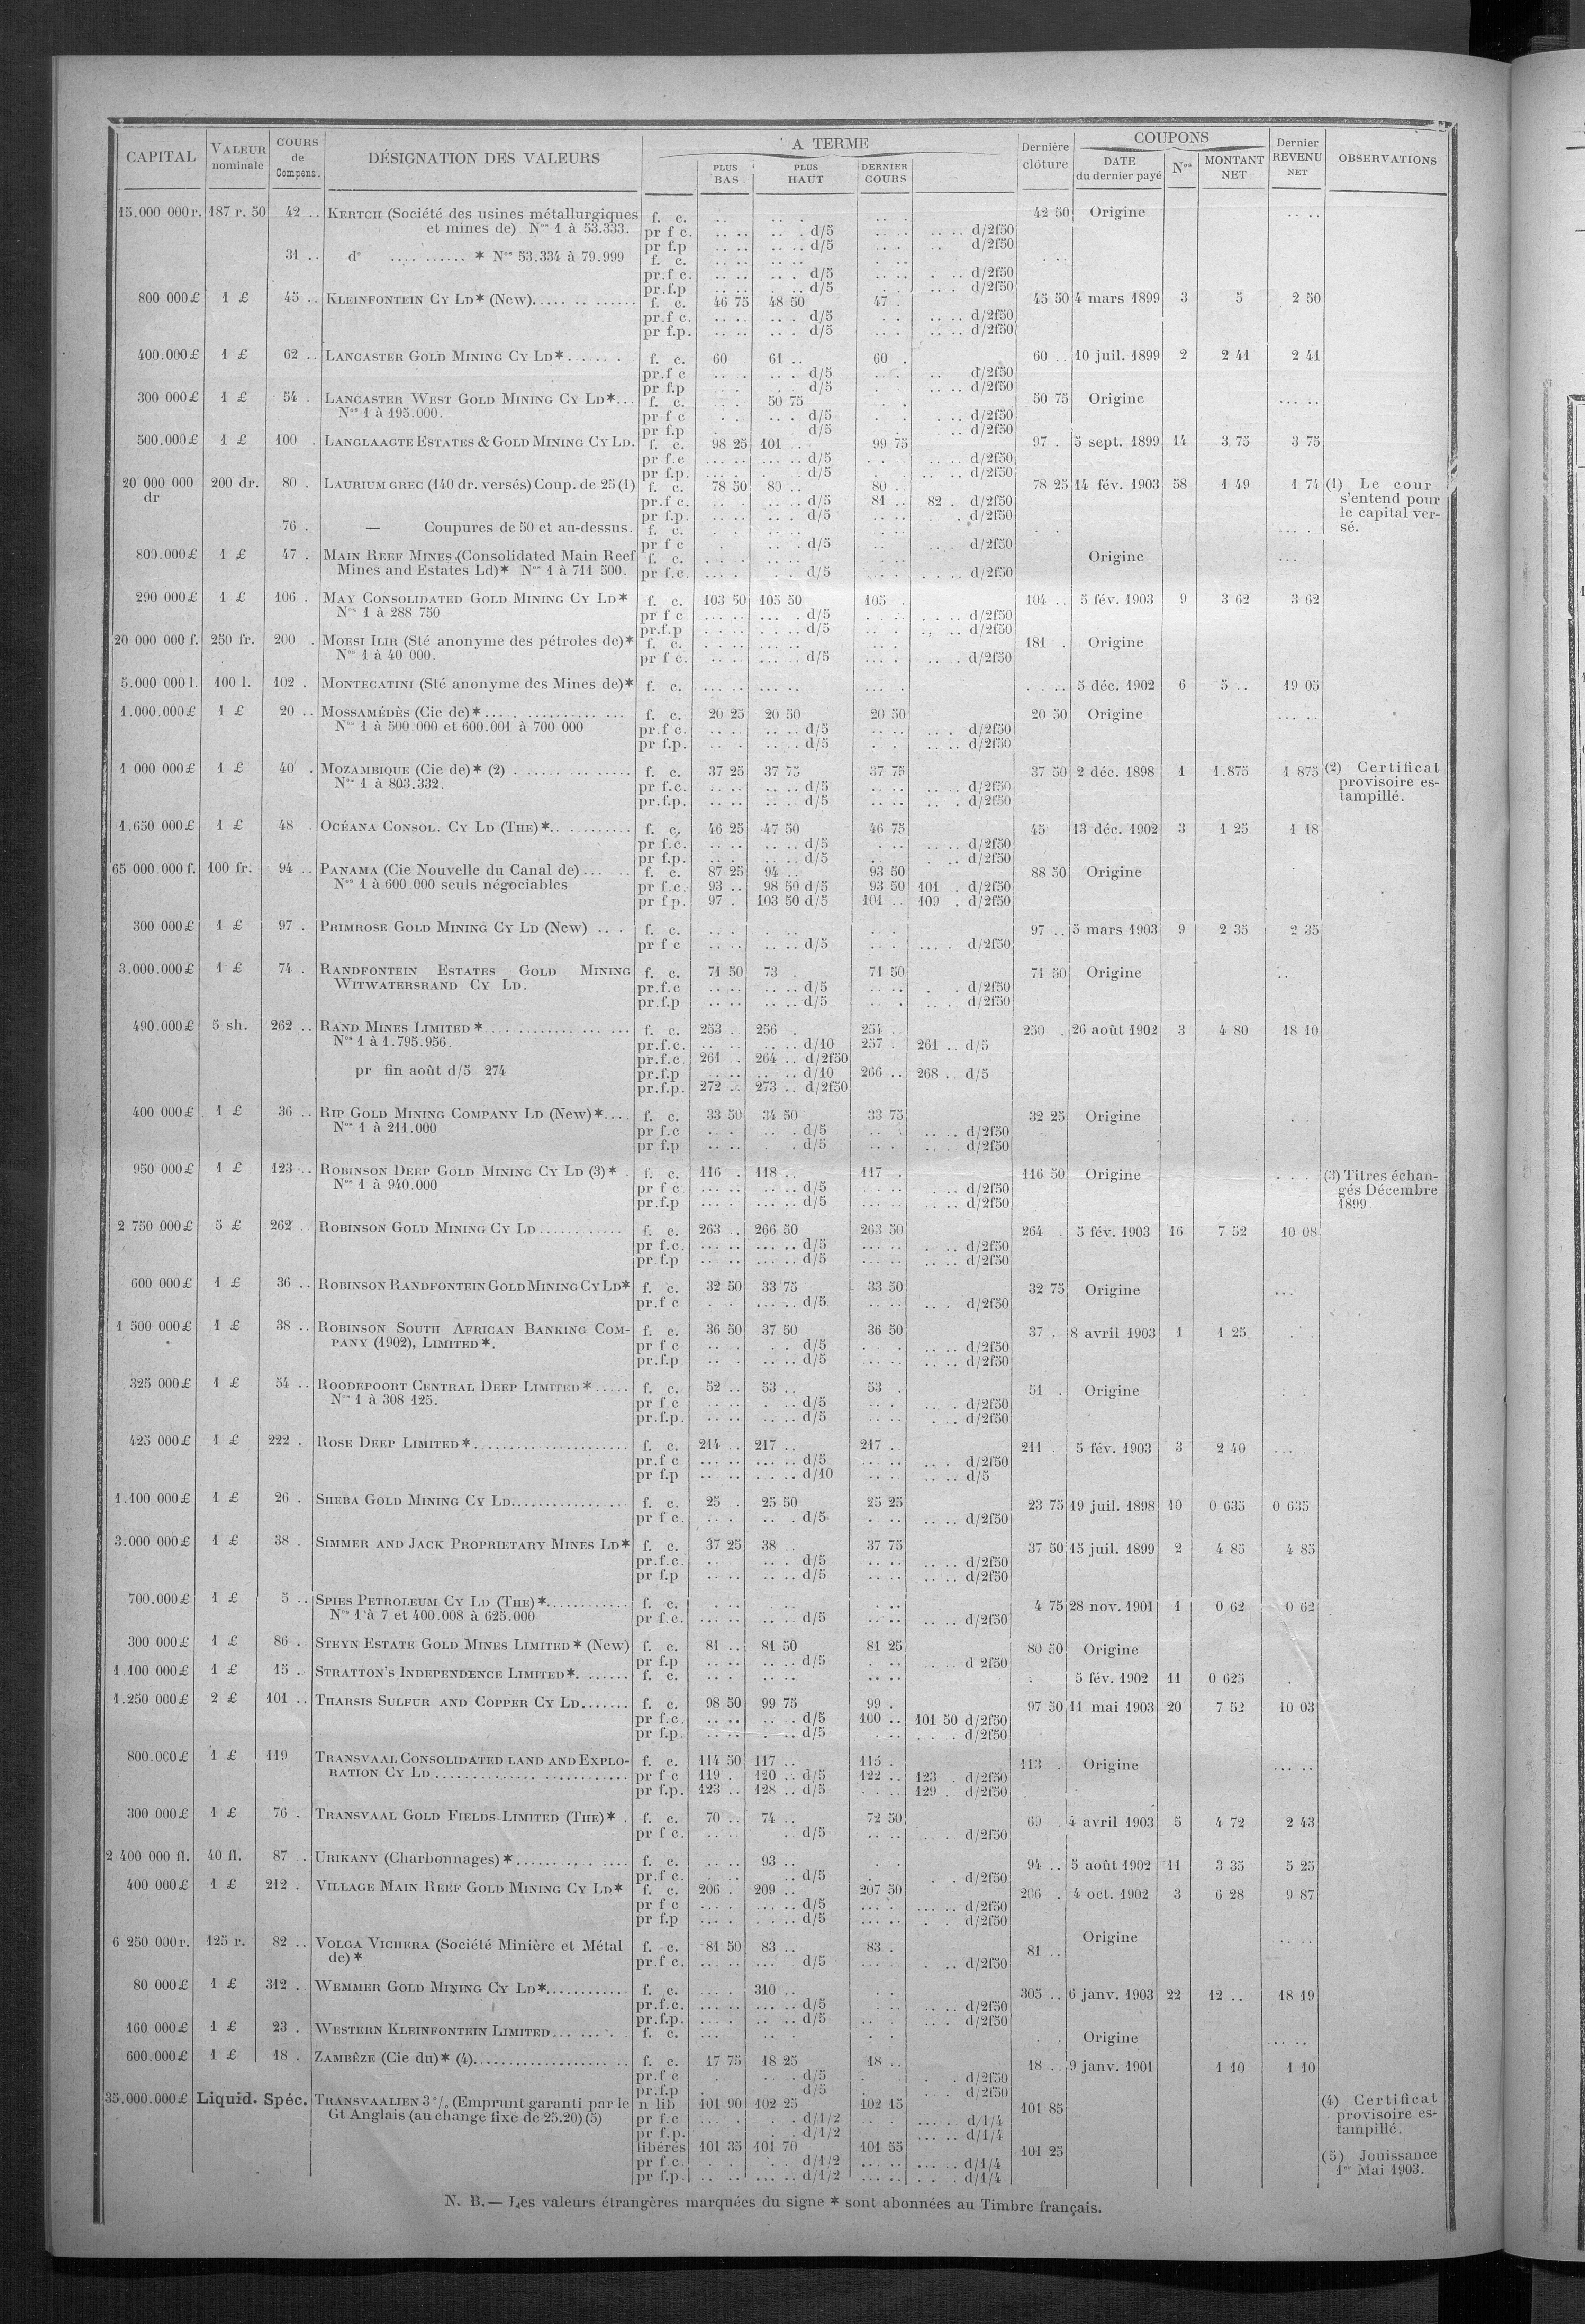 CAPITAL VALEUR nominale COURS de Compens. DÉSIGNATION DES VALEURS A TERME PLUS BAS PLUS HAUT DERNIER COURS Dernière clôture COUPONS DATE du dernier payé Nos MONTANT NET Dernier REVENU NET OBSERVATIONS
15.000 000 r. 187 r. 50 42 .. KERTCH (Société des usines métallurgiques f. c. 42 50 Origine
et mines de). Nos 1 à 53.333. pr f c. d/5 d/2f50
pr f.p d/5 d/2f50
31 .. do * Nos 53.334 à 79.999 f. c.
pr.f c. d/5 d/2f50
pr.f.p d/5 d/2f50
800 000 £ 1 £ 45 .. KLEINFONTEIN CY LD* (New) f. c. 46 75 48 50 47 . 45 50 4 mars 1899 3 5 2 50
pr.f c. d/5 d/2f50
pr f.p. d/5 d/2f50
400.000 £ 1 £ 62 .. LANCASTER GOLD MINING CY LD* f. c. 60 61 .. 60 . 60 .. 10 juil. 1899 2 2 41 2 41
pr.f c d/5 d/2f50
pr f.p d/5 d/2f50
300 000 £ 1 £ 54 . LANCASTER WEST GOLD MINING CY LD* f. c. 50 75 50 75 Origine
Nos 1 à 195.000. pr f c d/5 d/2f50
pr f.p d/5 d/2f50
500.000 £ 1 £ 100 . LANGLAAGTE ESTATES & GOLD MINING CY LD. f. c. 98 25 101 .. 99 75 97 . 5 sept. 1899 14 3 75 3 75
pr f.c d/5 d/2f50
pr f.p. d/5 d/2f50
20 000 000 dr 200 dr. 80 . LAURIUM GREC (140 dr. versés) Coup. de 25 (1) f. c. 78 50 80 .. 80 . 78 25 14 fév. 1903 58 1 49 1 74 (1) Le cour
pr.f c. d/5 81 .. 82 . d/2f50 s'entend pour
pr f.p. d/5 d/2f50 le capital ver-
76 . — Coupures de 50 et au-dessus. f. c. sé.
pr f c d/5 d/2f50
800.000 £ 1 £ 47 . MAIN REEF MINES (Consolidated Main Reef f. c. Origine
Mines and Estates Ld)* Nos 1 à 711 500. pr f.c. d/5 d/2f50
290 000 £ 1 £ 106 . MAY CONSOLIDATED GOLD MINING CY LD* f. c. 103 50 105 50 105 . 104 .. 5 fév. 1903 9 3 62 3 62
Nos 1 à 288 750 pr f c d/5 d/2f50
pr.f.p d/5 d/2f50
20 000 000 f. 250 fr. 200 . MOESI ILIR (Sté anonyme des pétroles de)* f. c. 181 . Origine
Nos 1 à 40 000. pr f c. d/5 d/2f50
5.000 000 l. 100 l. 102 . MONTECATINI (Sté anonyme des Mines de)* f. c. 5 déc. 1902 6 5 .. 19 05
1.000.000 £ 1 £ 20 .. MOSSAMÉDÈS (Cie de)* f. c. 20 25 20 50 20 50 20 50 Origine
Nos 1 à 500 000 et 600.001 à 700 000 pr.f c. d/5 d/2f50
pr f.p. d/5 d/2f50
1 000 000 £ 1 £ 40 . MOZAMBIQUE (Cie de)* (2) f. c. 37 25 37 75 37 75 37 50 2 déc. 1898 1 1.875 1 875 (2) Certificat
Nos 1 à 803.332. pr f.c. d/5 d/2f50 provisoire es-
pr.f.p. d/5 d/2f50 tampillé.
1.650 000 £ 1 £ 48 . OCÉANA CONSOL. CY LD (THE)* f. c. 46 25 47 50 46 75 45 13 déc. 1902 3 1 25 1 18
pr f.c. d/5 d/2f50
pr f.p. d/5 d/2f50
65 000.000 f. 100 fr. 94 .. PANAMA (Cie Nouvelle du Canal de) f. c. 87 25 94 .. 93 50 88 50 Origine
Nos 1 à 600.000 seuls négociables pr f.c. 93 .. 98 50 d/5 93 50 101 . d/2f50
pr f p. 97 . 103 50 d/5 101 .. 109 . d/2f50
300 000 £ 1 £ 97 . PRIMROSE GOLD MINING CY LD (New) f. c. 97 .. 5 mars 1903 9 2 35 2 35
pr f c d/5 d/2f50
3.000.000 £ 1 £ 74 . RANDFONTEIN ESTATES GOLD MINING f. c. 71 50 73 . 71 50 71 50 Origine
WITWATERSRAND CY LD. pr.f.c d/5 d/2f50
pr.f.p d/5 d/2f50
490.000 £ 5 sh. 262 .. RAND MINES LIMITED* f. c. 253 .. 256 . 254 .. 250 . 26 août 1902 3 4 80 18 10
Nos 1 à 1.795.956. pr.f.c. d/10 257 . 261 .. d/5
pr.f.c. 261 . 264 .. d/2f50
pr fin août d/5 274 pr.f.p d/10 266 .. 268 .. d/5
pr.f.p. 272 .. 273 .. d/2f50
400 000 £ 1 £ 36 .. RIP GOLD MINING COMPANY LD (New)* f. c. 33 50 34 50 33 75 32 25 Origine
Nos 1 à 211.000 pr f.c d/5 d/2f50
pr f.p d/5 d/2f50
950 000 £ 1 £ 123 .. ROBINSON DEEP GOLD MINING CY LD (3)* f. c. 116 . 118 .. 117 . 116 50 Origine (3) Titres échan-
Nos 1 à 940.000 pr f c d/5 d/2f50 gés Décembre
pr.f.p d/5 d/2f50 1899
2 750 000 £ 5 £ 262 ROBINSON GOLD MINING CY LD f. c. 263 .. 266 50 263 50 264 . 5 fév. 1903 16 7 52 10 08
pr f.c. d/5 d/2f50
pr f.p d/5 d/2f50
600 000 £ 1 £ 36 .. ROBINSON RANDFONTEIN GOLD MINING CY LD* f. c. 32 50 33 75 33 50 32 75 Origine
pr.f c d/5 d/2f50
1 500 000 £ 1 £ 38 .. ROBINSON SOUTH AFRICAN BANKING COM- f. c. 36 50 37 50 36 50 37 . 8 avril 1903 1 1 25
PANY (1902), LIMITED*. pr f c d/5 d/2f50
pr.f.p d/5 d/2f50
325 000 £ 1 £ 54 .. ROODEPOORT CENTRAL DEEP LIMITED* f. c. 52 .. 53 .. 53 . 51 . Origine
Nos 1 à 308 125. pr f c d/5 d/2f50
pr.f.p. d/5 d/2f50
425 000 £ 1 £ 222 . ROSE DEEP LIMITED* f. c. 214 .. 217 .. 217 . 211 . 5 fév. 1903 3 2 40
pr.f c d/5 d/2f50
pr f.p d/10 d/5
1.100 000 £ 1 £ 26 . SHEBA GOLD MINING CY LD f. c. 25 . 25 50 25 25 23 75 19 juil. 1898 10 0 635 0 635
pr f c. d/5 d/2f50
3.000 000 £ 1 £ 38 . SIMMER AND JACK PROPRIETARY MINES LD* f. c. 37 25 38 .. 37 75 37 50 15 juil. 1899 2 4 85 4 85
pr.f.c. d/5 d/2f50
pr f.p d/5 d/2f50
700.000 £ 1 £ 5 .. SPIES PETROLEUM CY LD (THE)* f. c. 4 75 28 nov. 1901 1 0 62 0 62
Nos 1 à 7 et 400.008 à 625.000 pr f.c. d/5 d/2f50
300 000 £ 1 £ 86 . STEYN ESTATE GOLD MINES LIMITED* (New) f. c. 81 .. 81 50 81 25 80 50 Origine
pr f.p d/5 d 2f50
1.100 000 £ 1 £ 15 .. STRATTON'S INDEPENDENCE LIMITED* f. c. 5 fév. 1902 11 0 625
1.250 000 £ 2 £ 101 .. THARSIS SULFUR AND COPPER CY LD f. c. 98 50 99 75 99 . 97 50 11 mai 1903 20 7 52 10 03
pr f.c. d/5 100 .. 101 50 d/2f50
pr f.p. d/5 d/2f50
800.000 £ 1 £ 119 TRANSVAAL CONSOLIDATED LAND AND EXPLO- f. c. 114 50 117 .. 115 . 113 . Origine
RATION CY LD pr f c 119 . 120 .. d/5 122 .. 123 . d/2f50
pr f.p. 123 .. 128 .. d/5 129 . d/2f50
300 000 £ 1 £ 76 . TRANSVAAL GOLD FIELDS LIMITED (THE)* f. c. 70 .. 74 .. 72 50 69 . 4 avril 1903 5 4 72 2 43
pr f c. d/5 d/2f50
2 400 000 fl. 40 fl. 87 . URIKANY (Charbonnages)* f. c. 93 .. 94 .. 5 août 1902 11 3 35 5 25
pr.f c. d/5 d/2f50
400 000 £ 1 £ 212 . VILLAGE MAIN REEF GOLD MINING CY LD* f. c. 206 . 209 .. 207 50 206 . 4 oct. 1902 3 6 28 9 87
pr f c d/5 d/2f50
pr f.p d/5 d/2f50
6 250 000 r. 125 r. 82 .. VOLGA VICHERA (Société Minière et Métal f. c. 81 50 83 .. 83 . 81 .. Origine
de)* pr.f c. d/5 d/2f50
80 000 £ 1 £ 312 . WEMMER GOLD MINING CY LD* f. c. 310 .. 305 .. 6 janv. 1903 22 12 .. 18 19
pr.f.c. d/5 d/2f50
pr.f.p. d/5 d/2f50
160 000 £ 1 £ 23 . WESTERN KLEINFONTEIN LIMITED f. c. Origine
600.000 £ 1 £ 18 . ZAMBÈZE (Cie du)* (4) f. c. 17 75 18 25 18 .. 18 .. 9 janv. 1901 1 10 1 10
pr.f c d/5 d/2f50
pr.f.p d/5 d/2f50
35.000.000 £ Liquid. Spéc. TRANSVAALIEN 3 % (Emprunt garanti par le n lib 101 90 102 25 102 15 101 85 (4) Certificat
Gt Anglais (au change fixe de 25.20) (5) pr f.c d/1/2 d/1/4 provisoire es-
pr f.p. d/1/2 d/1/4 tampillé.
libérés 101 35 101 70 101 55 101 25 (5) Jouissance
pr f.c. d/1/2 d/1/4 1er Mai 1903.
pr f.p. d/1/2 d/1/4
N. B.— Les valeurs étrangères marquées du signe * sont abonnées au Timbre français.